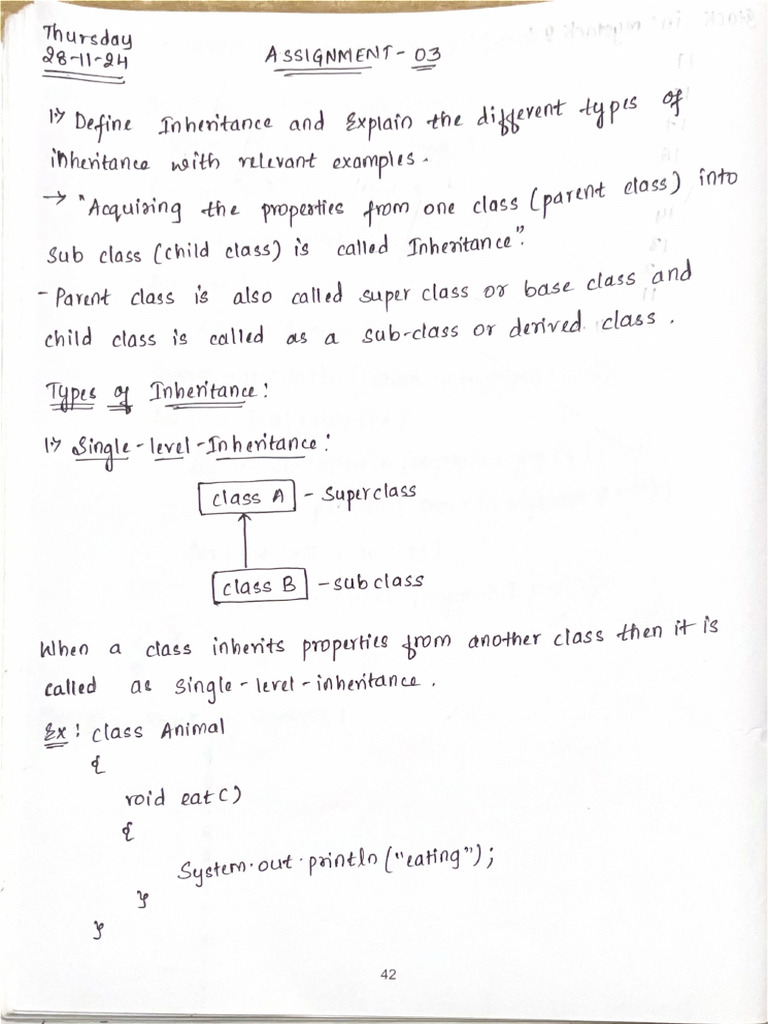 Thursday
28-11-24
ASSIGNMENT-03
1> Define Inheritance and Explain the different types of
inheritance with relevant examples.
→ "Acquiring the properties from one class (parent class) into
Sub class (child class) is called Inheritance".
- Parent class is also called super class or base class and
child class is called as a sub-class or derived class.
Types of Inheritance:
1> Single-level-Inheritance:
class A - Superclass
class B - subclass
When a class inherits properties from another class then it is
called as single-level-inheritance.
Ex: class Animal
{
void eat()
{
System.out.println("eating");
}
}
42